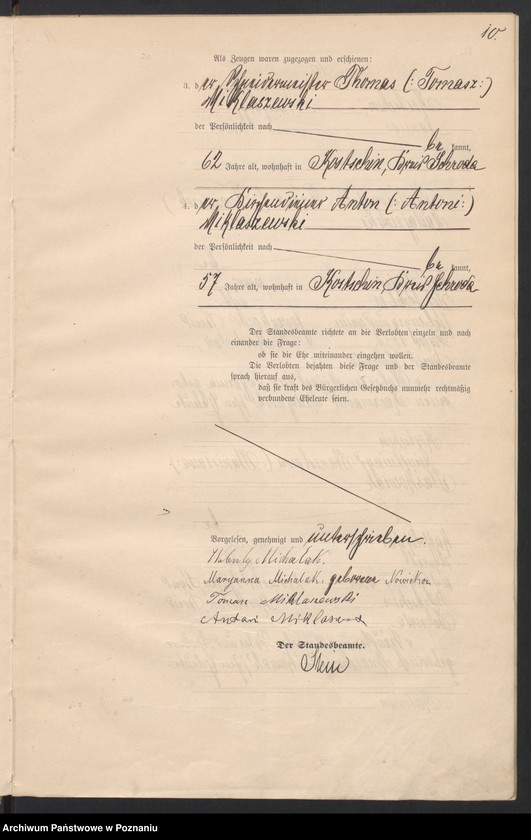 10.
Als Zeugen waren zugezogen und erschienen:
3. der Schneidermeister Thomas (: Tomasz :)
Miklaszewski
der Persönlichkeit nach
be kannt,
62 Jahre alt, wohnhaft in Kostschin, Kreis Schroda
4. der Kirchendiener Anton (: Antoni :)
Miklaszewski
der Persönlichkeit nach
be kannt,
57 Jahre alt, wohnhaft in Kostschin, Kreis Schroda
Der Standesbeamte richtete an die Verlobten einzeln und nach
einander die Frage:
ob sie die Ehe miteinander eingehen wollen.
Die Verlobten bejahten diese Frage und der Standesbeamte
sprach hierauf aus,
daß sie kraft des Bürgerlichen Gesetzbuchs nunmehr rechtmäßig
verbundene Eheleute seien.
Vorgelesen, genehmigt und unterschrieben.
Michalak.
Maryanna Michalak, geborene
Tomasz Miklaszewski
Antoni
Der Standesbeamte.
Stein
Archiwum Państwowe w Poznaniu